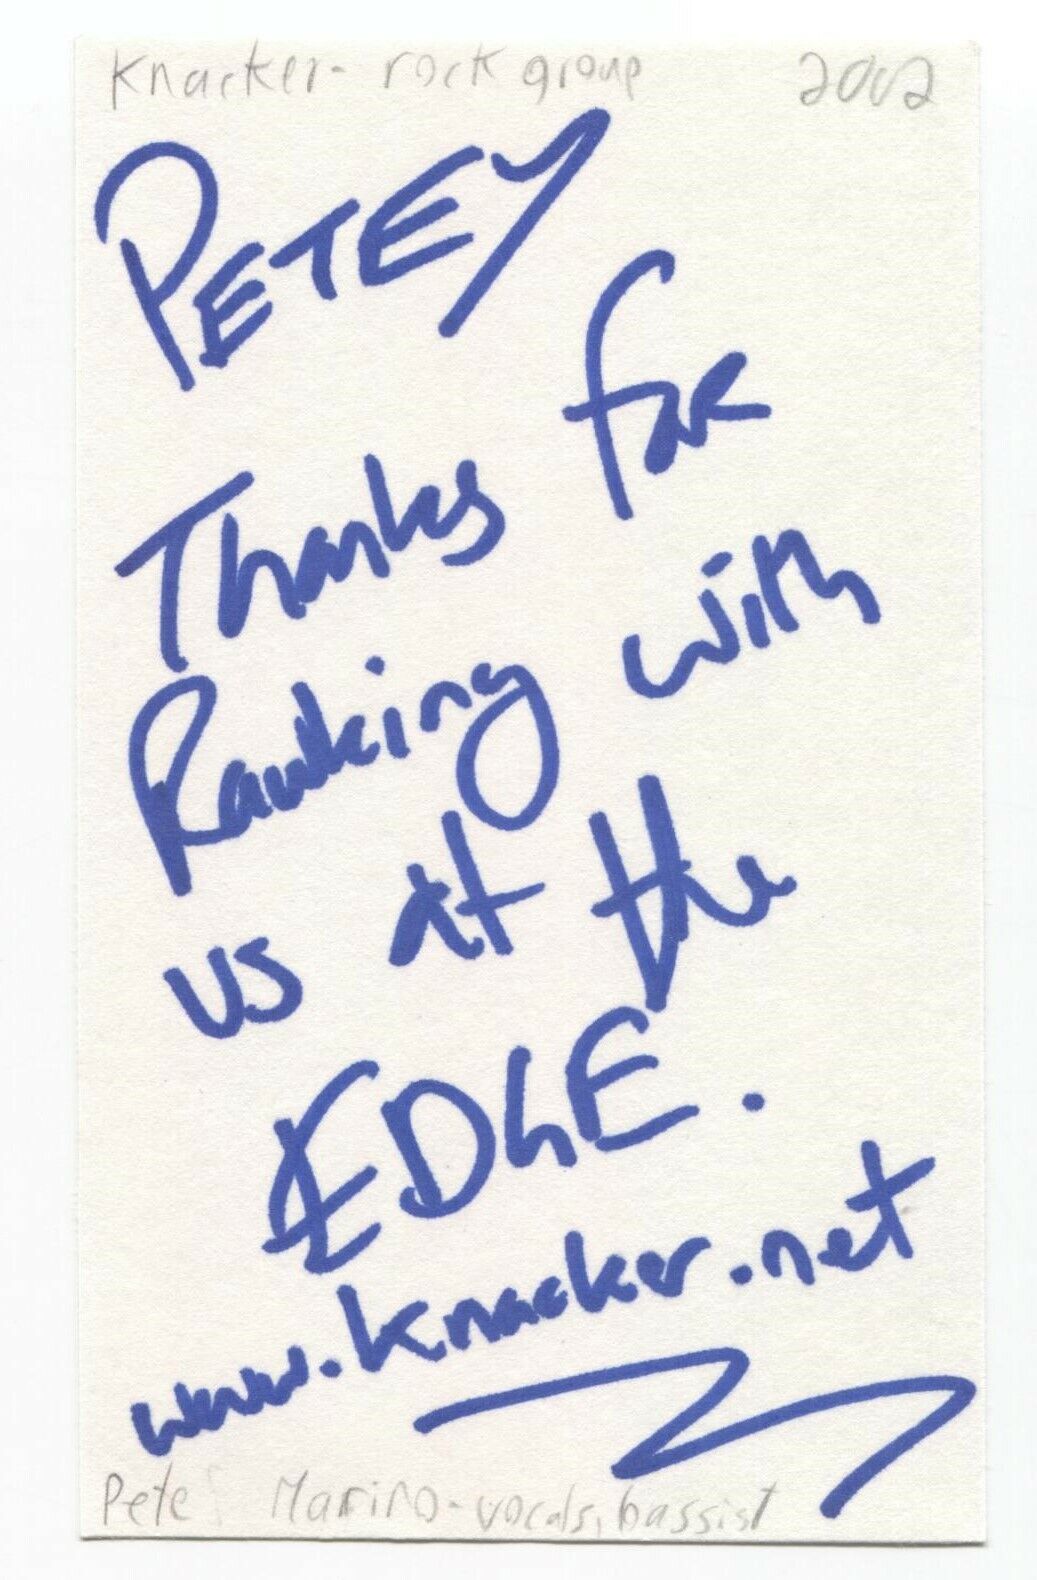 Knacker- rock group 2002
PETEY
Thanks for
Rawking with
us at the
EDGE.
www.knacker.net
Pete Marino-vocals, bassist